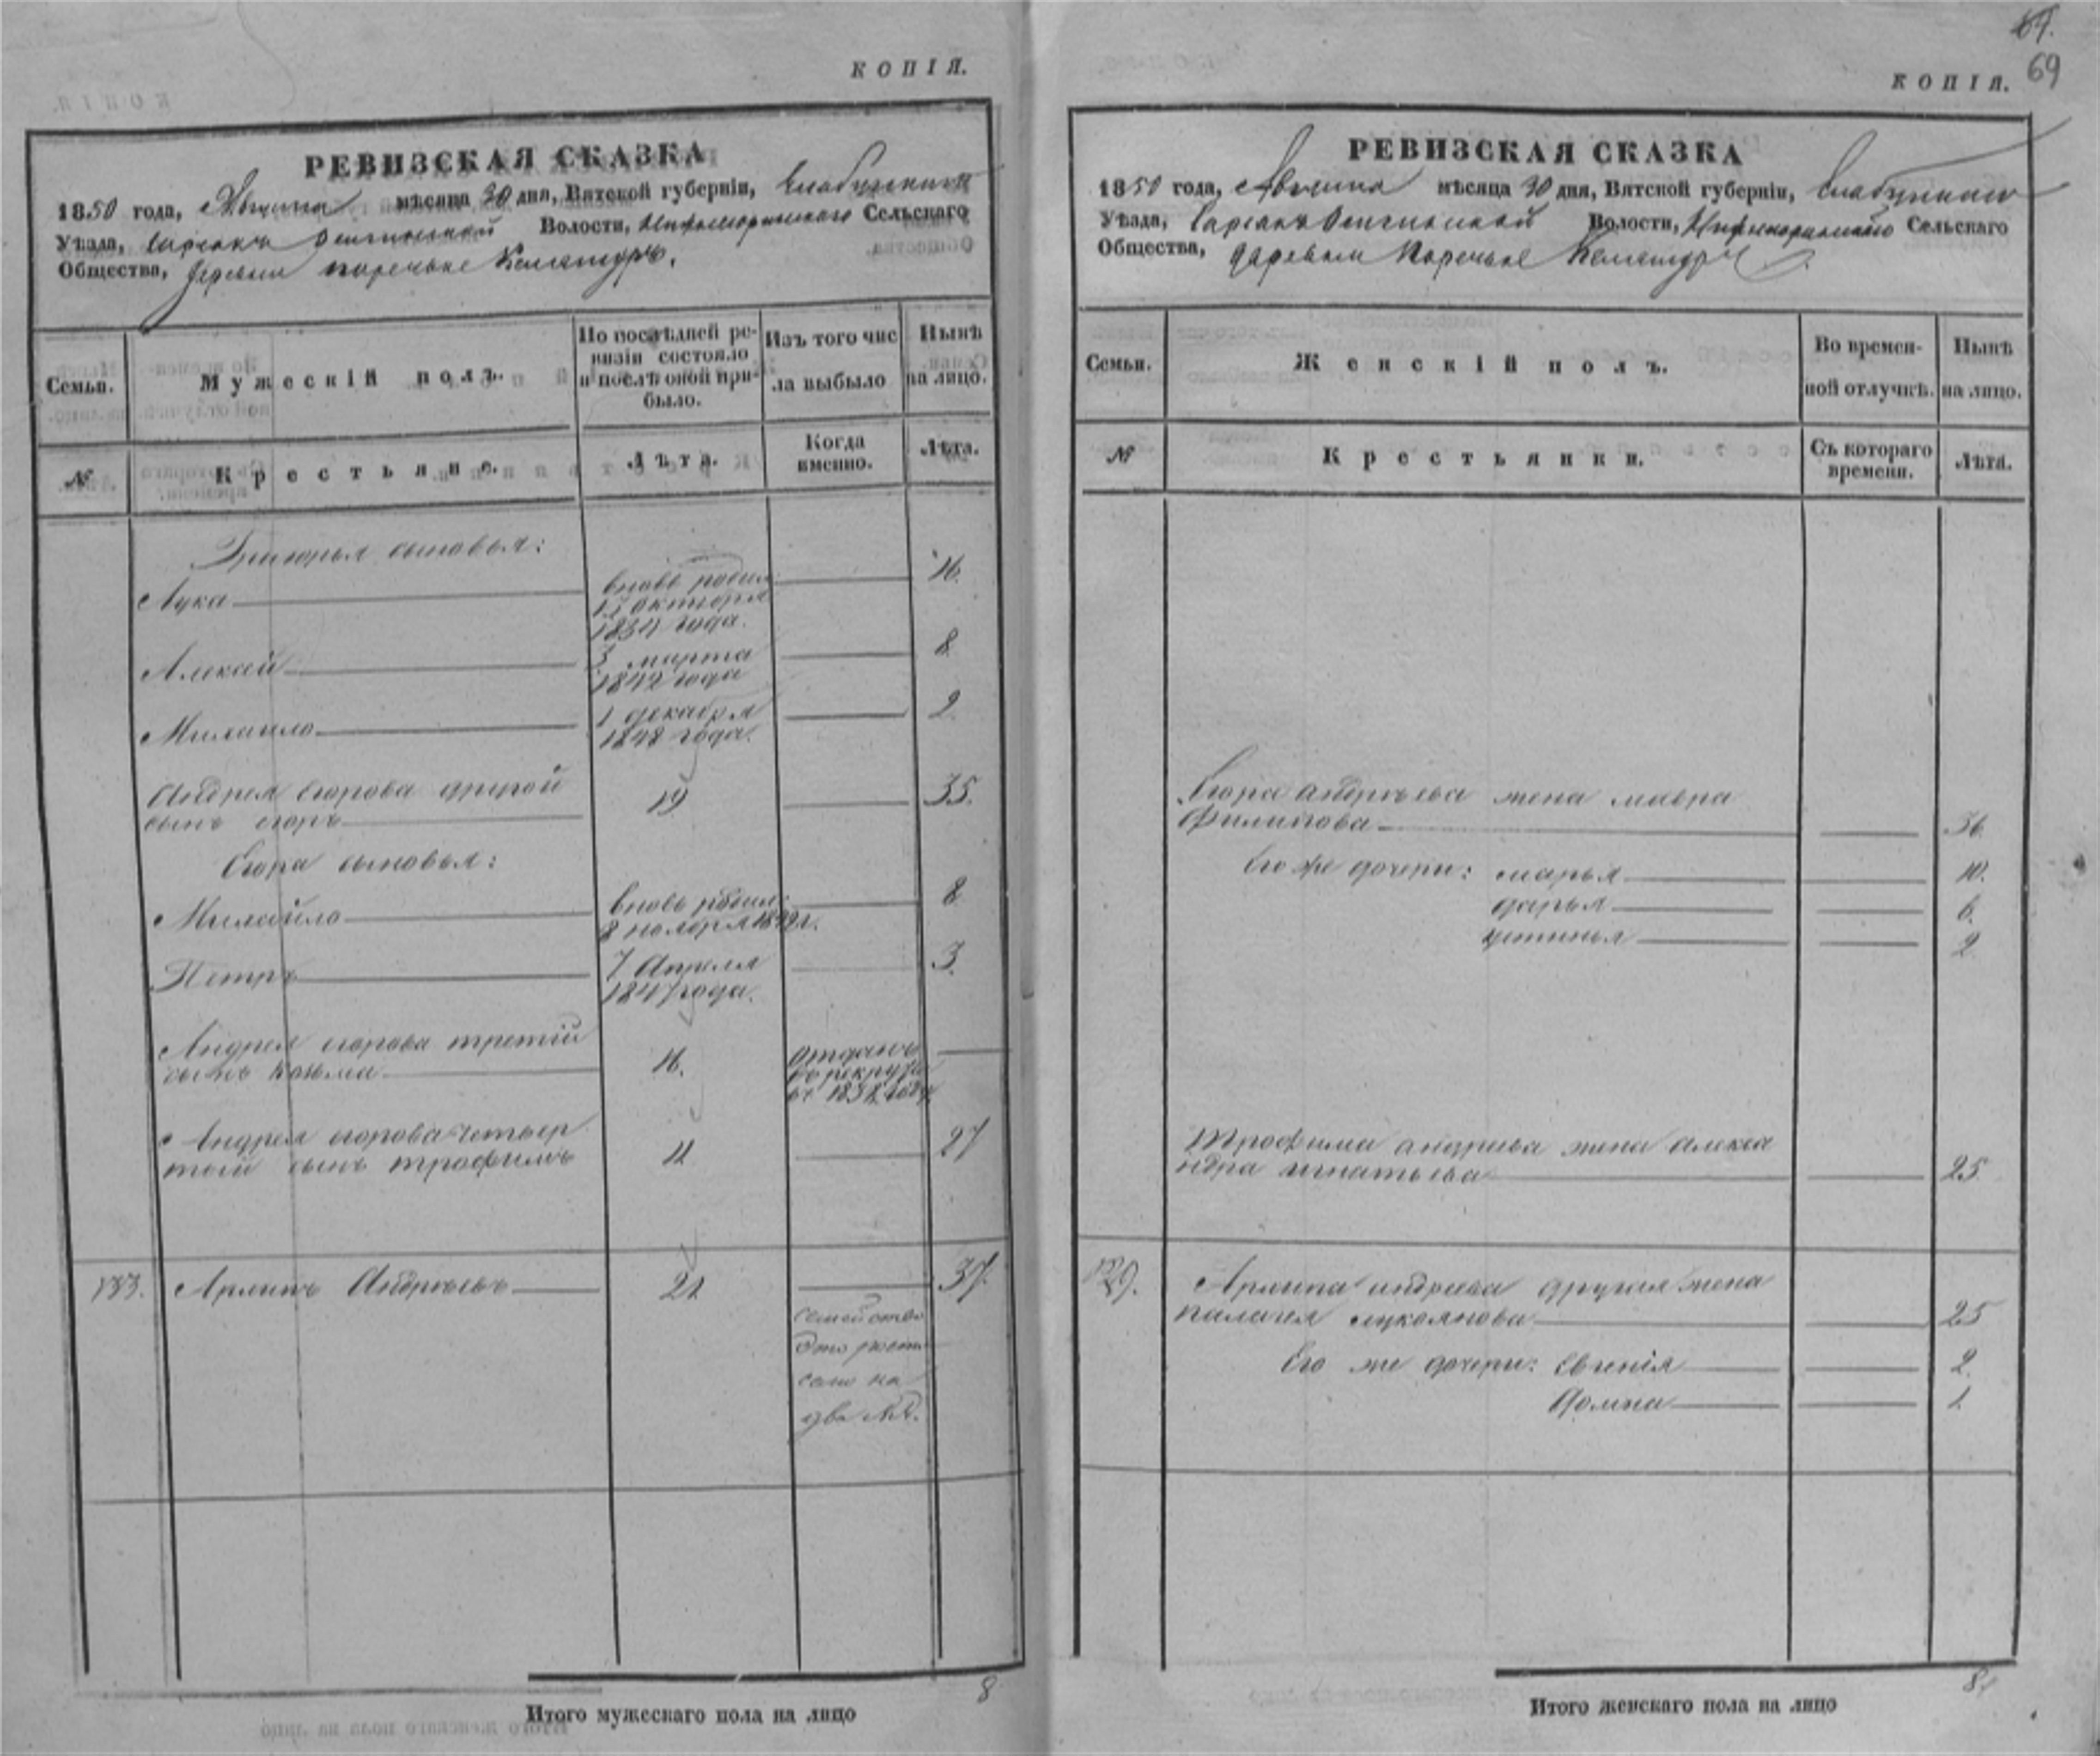 КОПІЯ.
РЕВИЗСКАЯ СКАЗКА
1850 года, Августа мѣсяца 30 дня, Вятской губерніи, Елабужскаго
Уѣзда, Волости, Сельскаго
Общества, деревни поречьке
Семьи. Мужескій полъ. По послѣдней ре- Изъ того чис Нынѣ
визіи состояло
и послѣ оной при- ла выбыло на лицо.
было.
№ Крестьяне. Лѣта. Когда Лѣта.
именно.
Григорья сыновья:
Лука вновь родил 16.
октября
1834 года.
Алексей 3 марта 8
1842 года
Михаило 1 декабря 2
1848 года.
Андрея егорова другой 19 35.
сынъ егоръ
Егора сыновья:
Михайло вновь родил: 8
8 ноября 1842 г.
Петръ 7 Апреля 3.
1847 года.
Андрея егорова третій 16. отданъ
сынъ козьма въ рекруты
въ 1838 году
Андрея егорова четвер 11 27
тый сынъ трофимъ
133. Андреевъ 21 37.
семейство
это
само на
два №№.
Итого мужескаго пола на лицо 8
67.
69
КОПІЯ.
РЕВИЗСКАЯ СКАЗКА
1850 года, Августа мѣсяца 30 дня, Вятской губерніи, Елабужскаго
Уѣзда, Волости, Сельскаго
Общества, деревни Поречьке
Семьи. Женскій полъ. Во времен- Нынѣ
ной отлучкѣ. на лицо.
№ Крестьянки. Съ котораго Лѣта.
времени.
Егора андреева жена мавра
Филипова 36.
Его же дочери: марья 10.
дарья 6.
устинья 2
Трофима андреева жена алекса
ндра игнатьева 25
андреева другая жена
палагея лукоянова 25
Его же дочери: Евгенія 2.
Домна 1.
Итого женскаго пола на лицо 8